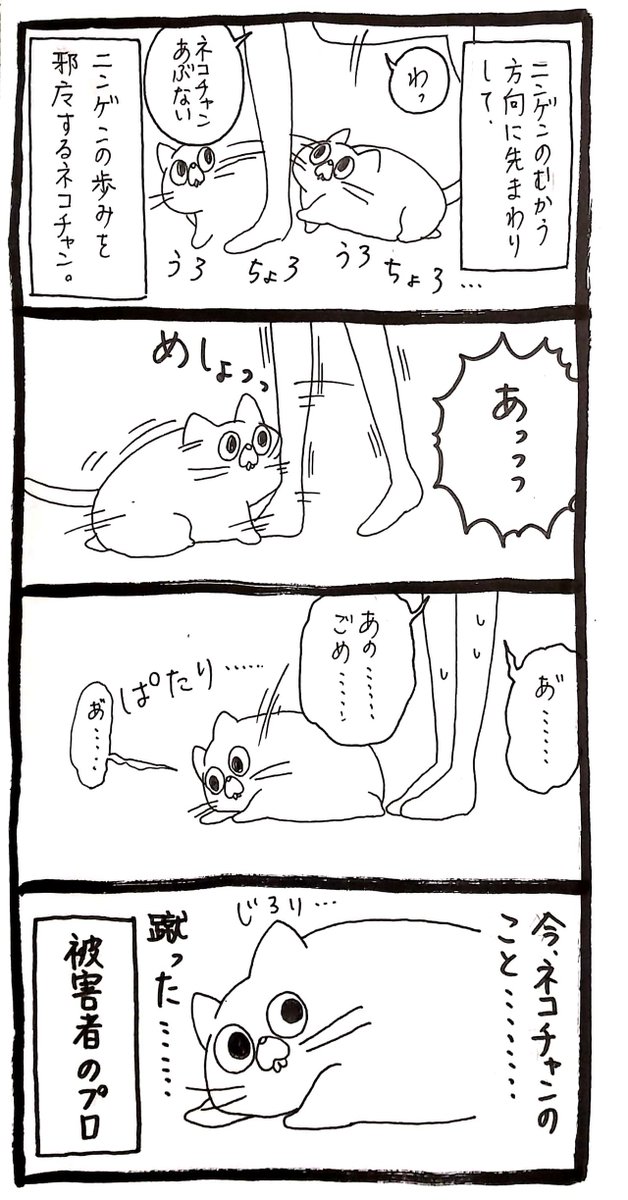 ニンゲンのむかう
方向に先まわり
して、
わっ
ネコチャン
あぶない
ニンゲンの歩みを
邪魔するネコチャン。
うろ
ちょろ
うろ
ちょろ…
あっっっ
めしょっっ
あ゛……
あの……
ごめ……
ぱたり……
あ゛……
今、ネコチャンの
こと………
じろり…
蹴った……
被害者のプロ